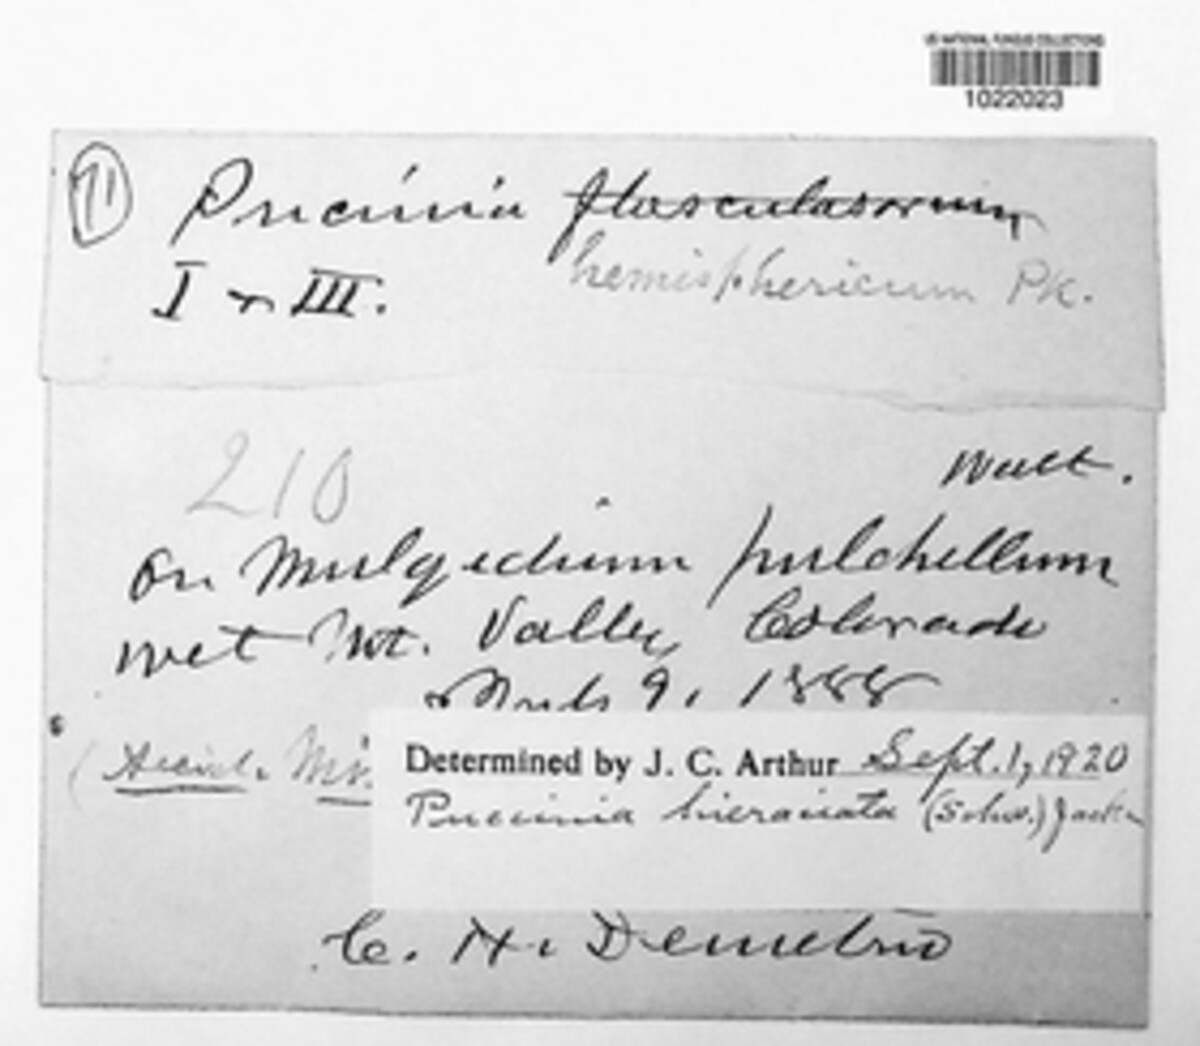 US NATIONAL FUNGUS COLLECTIONS
1022023
71
Puccinia flosculosorum
hemisphericum Pk.
I & III.
210
Nutt.
on Mulgedium pulchellum
wet Mt. Valley, Colorado
9, 1888
(Aecid.
Determined by J. C. Arthur Sept. 1, 1920
Puccinia hieraciata (Schw.) Jacks
C. H. Demetrio